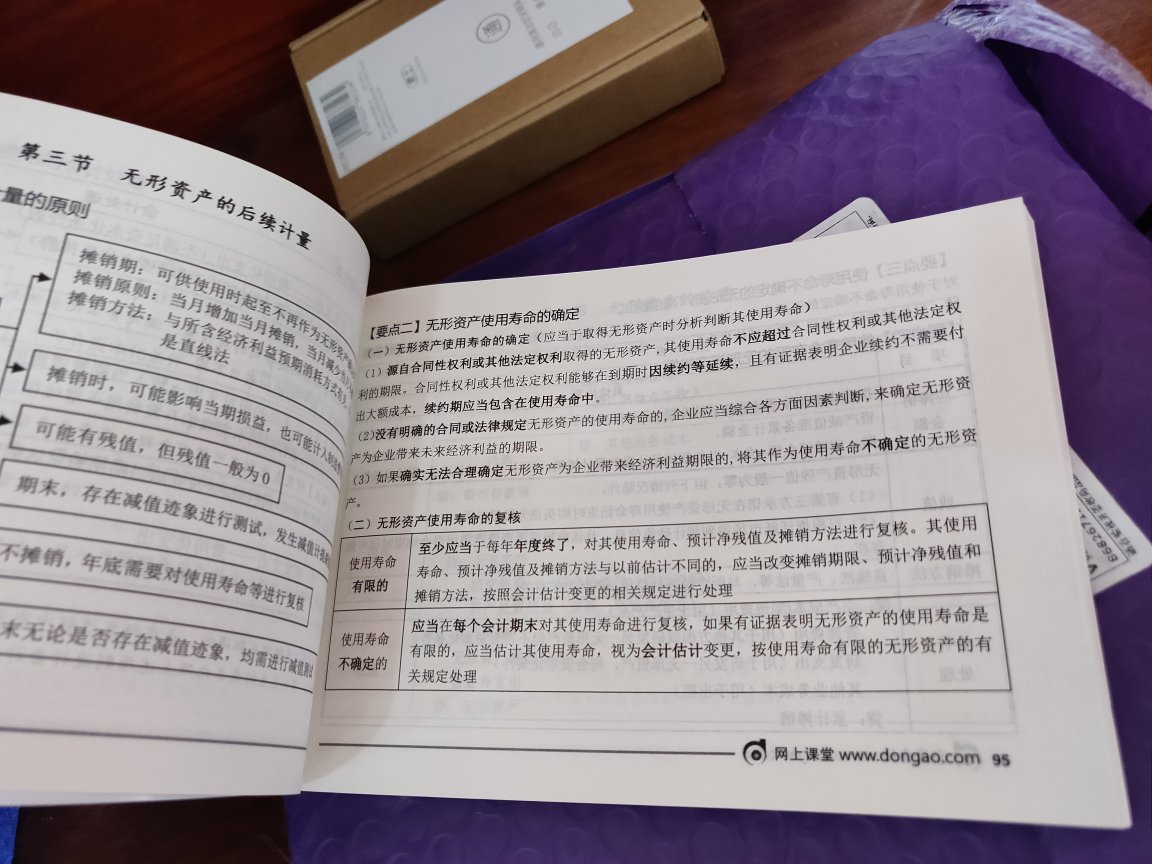 第三节 无形资产的后续计量
计量的原则
摊销期：可供使用时起至不再作为无形资产
摊销原则：当月增加当月摊销，当月减少
摊销方法：与所含经济利益预期消耗方式有关
是直线法
摊销时，可能影响当期损益，也可能计入
可能有残值，但残值一般为0
期末，存在减值迹象进行测试，发生减值计提
不摊销，年底需要对使用寿命等进行复核
末无论是否存在减值迹象，均需进行减值测试
【要点二】无形资产使用寿命的确定
（一）无形资产使用寿命的确定（应当于取得无形资产时分析判断其使用寿命）
（1）源自合同性权利或其他法定权利取得的无形资产，其使用寿命不应超过合同性权利或其他法定权
利的期限。合同性权利或其他法定权利能够在到期时因续约等延续，且有证据表明企业续约不需要付
出大额成本，续约期应当包含在使用寿命中。
（2）没有明确的合同或法律规定无形资产的使用寿命的，企业应当综合各方面因素判断，来确定无形资
产为企业带来未来经济利益的期限。
（3）如果确实无法合理确定无形资产为企业带来经济利益期限的，将其作为使用寿命不确定的无形资
产。
（二）无形资产使用寿命的复核
使用寿命
有限的
至少应当于每年年度终了，对其使用寿命、预计净残值及摊销方法进行复核。其使用
寿命、预计净残值及摊销方法与以前估计不同的，应当改变摊销期限、预计净残值和
摊销方法，按照会计估计变更的相关规定进行处理
使用寿命
不确定的
应当在每个会计期末对其使用寿命进行复核，如果有证据表明无形资产的使用寿命是
有限的，应当估计其使用寿命，视为会计估计变更，按使用寿命有限的无形资产的有
关规定处理
网上课堂 www.dongao.com 95